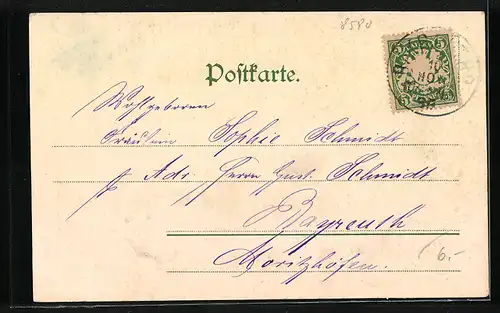 8580
BAYERN
5 5
Postkarte.
Wohlgeboren
Fräulein Sophie Schmidt
p. Adr. Herrn Gust. Schmidt
Bayreuth
Moritzhöfen.
6.-